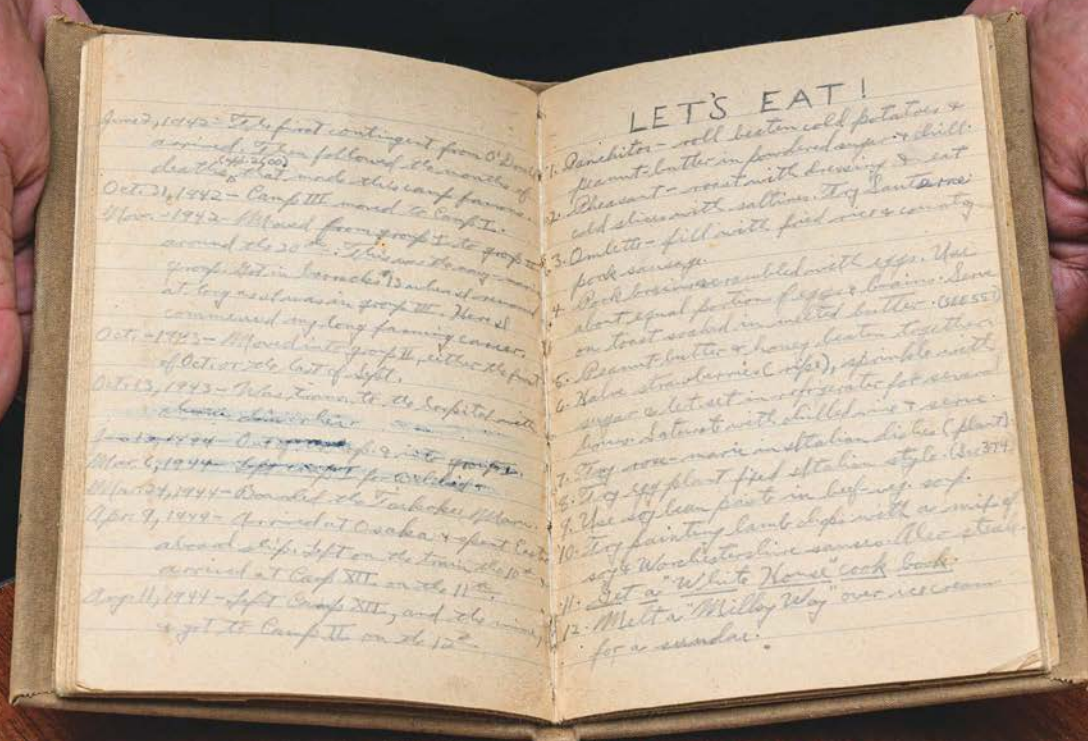 June 2, 1942 - The first contingent from O'Donnell
arrived. Then followed the months of
deaths that made this camp famous.
Oct. 31, 1942 - Camp III moved to Camp I.
Nov. - 1942 - Moved from group I to group
around the 20th. This was the navy
group. Got in barracks 13
as long as I was in group III. Here I
commenced my long farming career.
Oct. - 1943 - Moved into group II, either the first
of Oct. or the last of Sept.
Oct. 13, 1943 - Was to the hospital with
1944 - & into group
Mar. 6, 1944 - for
Mar. 24, 1944 - Boarded the Maru.
Apr. 9, 1944 - Arrived at Osaka & spent Easter
aboard ship. Left on the train the 10th &
arrived at Camp XII on the 11th.
Aug. 11, 1944 - Left Camp XII, and the mine,
& got to Camp II on the 12th
LET'S EAT!
1. Panchitos - roll beaten cold potatoes &
peanut-butter in powdered sugar & chill.
2. Pheasant - roast with dressing & eat
cold slices with saltines. Try Sauterne
3. Omlette - fill with fried rice & country
pork sausage.
4. Pork brains scrambled with eggs. Use
about equal portions of eggs & brains. Serve
on toast soaked in melted butter. (SEE 557)
5. Peanut-butter & honey beaten together
6. Halve strawberries (ripe), sprinkle with
sugar & let set in refrigerator for several
hours. Saturate with chilled wine & serve.
7. Try rose-marie in Italian dishes (plant)
8. Try egg plant fixed Italian style. (See 374)
9. Use soy bean paste in beef-veg. soup.
10. Try painting lamb chops with a mix of
soy & Worchestershire sauces. Also steak.
11. Get a "White House" cook book.
12. Melt a "Milky Way" over ice cream
for a sundae.